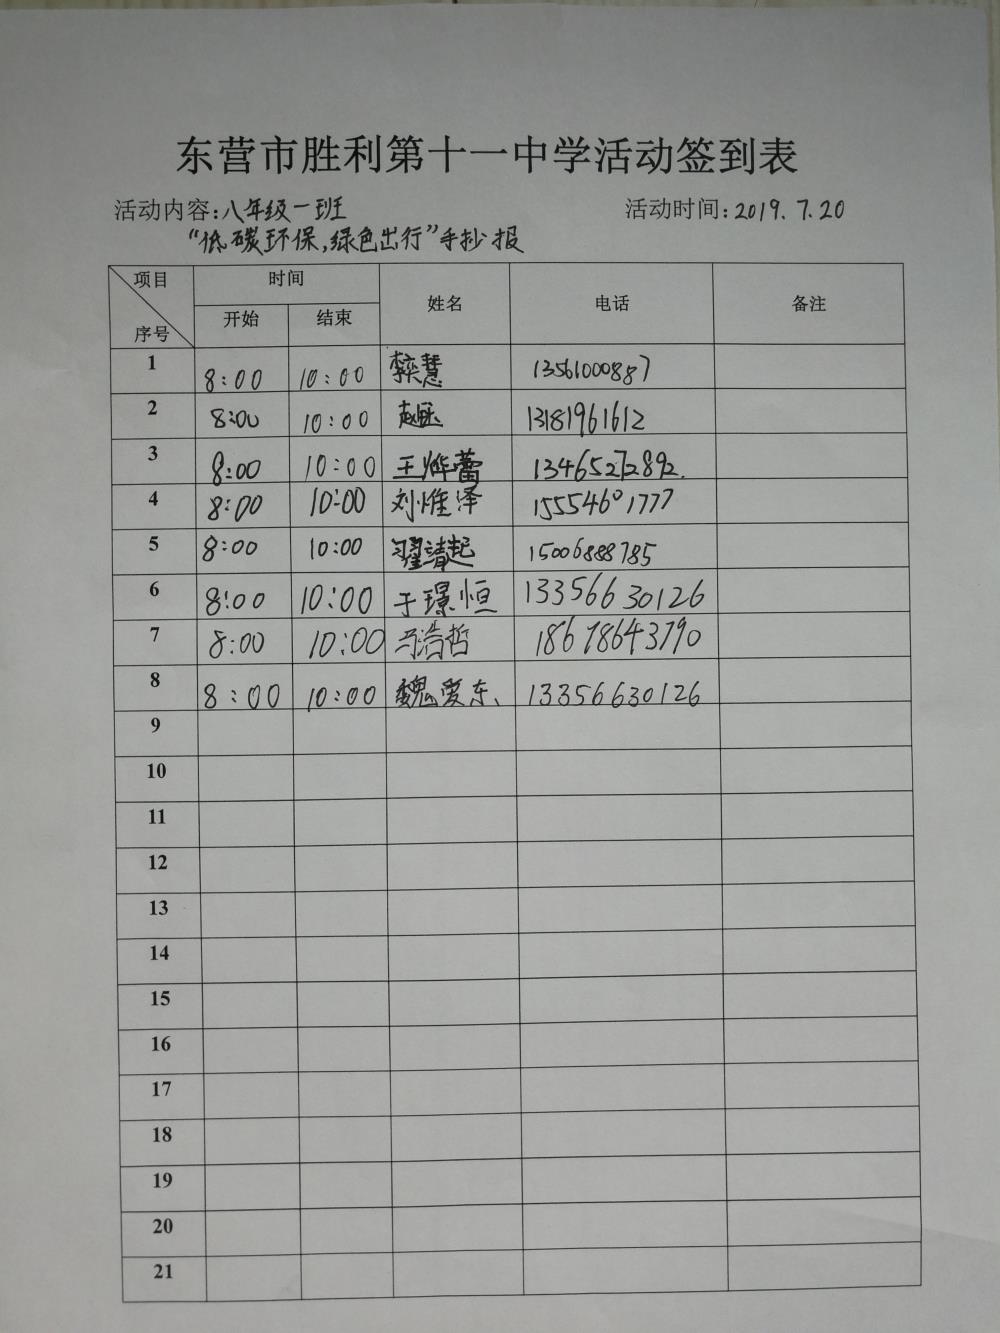 东营市胜利第十一中学活动签到表
活动内容:八年级一班 活动时间:2019.7.20
“低碳环保,绿色出行”手抄报
项目 时间 姓名 电话 备注
序号 开始 结束
1 8:00 10:00 慧 13561000887
2 8:00 10:00 赵 13181961612
3 8:00 10:00 王烨蕾 13465272892.
4 8:00 10:00 刘惟泽 15554601777
5 8:00 10:00 翟清起 15006888785
6 8:00 10:00 于璟恒 13356630126
7 8:00 10:00 马浩哲 18678643790
8 8:00 10:00 魏爱东、 13356630126
9
10
11
12
13
14
15
16
17
18
19
20
21